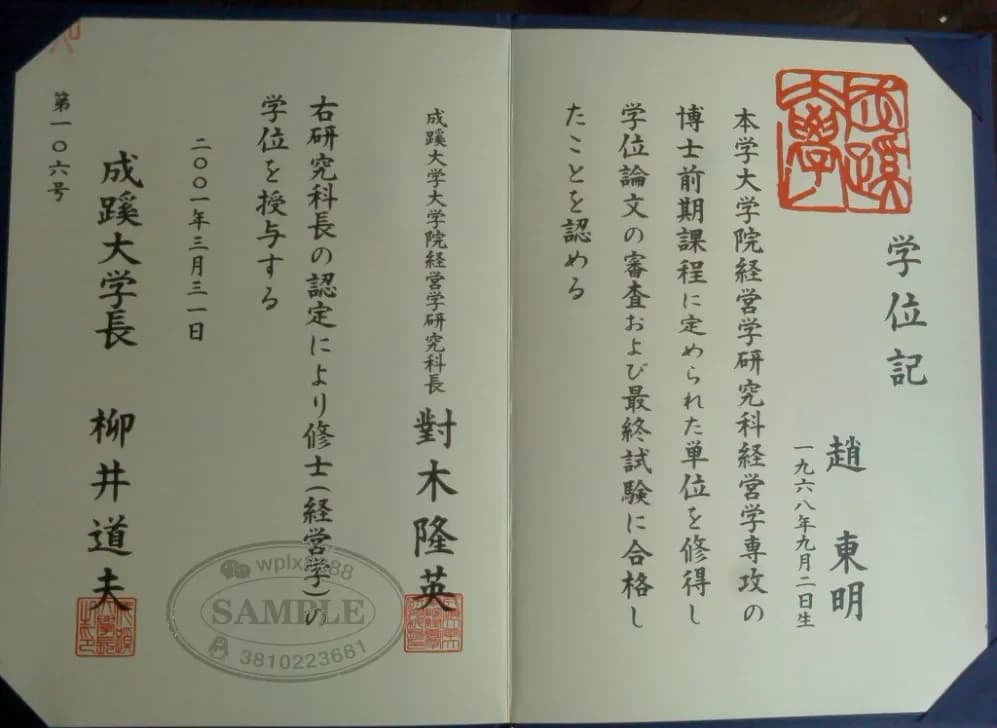 学位記
趙 東明
一九六八年九月二日生
本学大学院経営学研究科経営学専攻の
博士前期課程に定められた単位を修得し
学位論文の審査および最終試験に合格し
たことを認める
成蹊大学大学院経営学研究科長 對木隆英
右研究科長の認定により修士(経営学)の
学位を授与する
二〇〇一年三月三一日
成蹊大学長 柳井道夫
第一〇六号
SAMPLE
3810223681